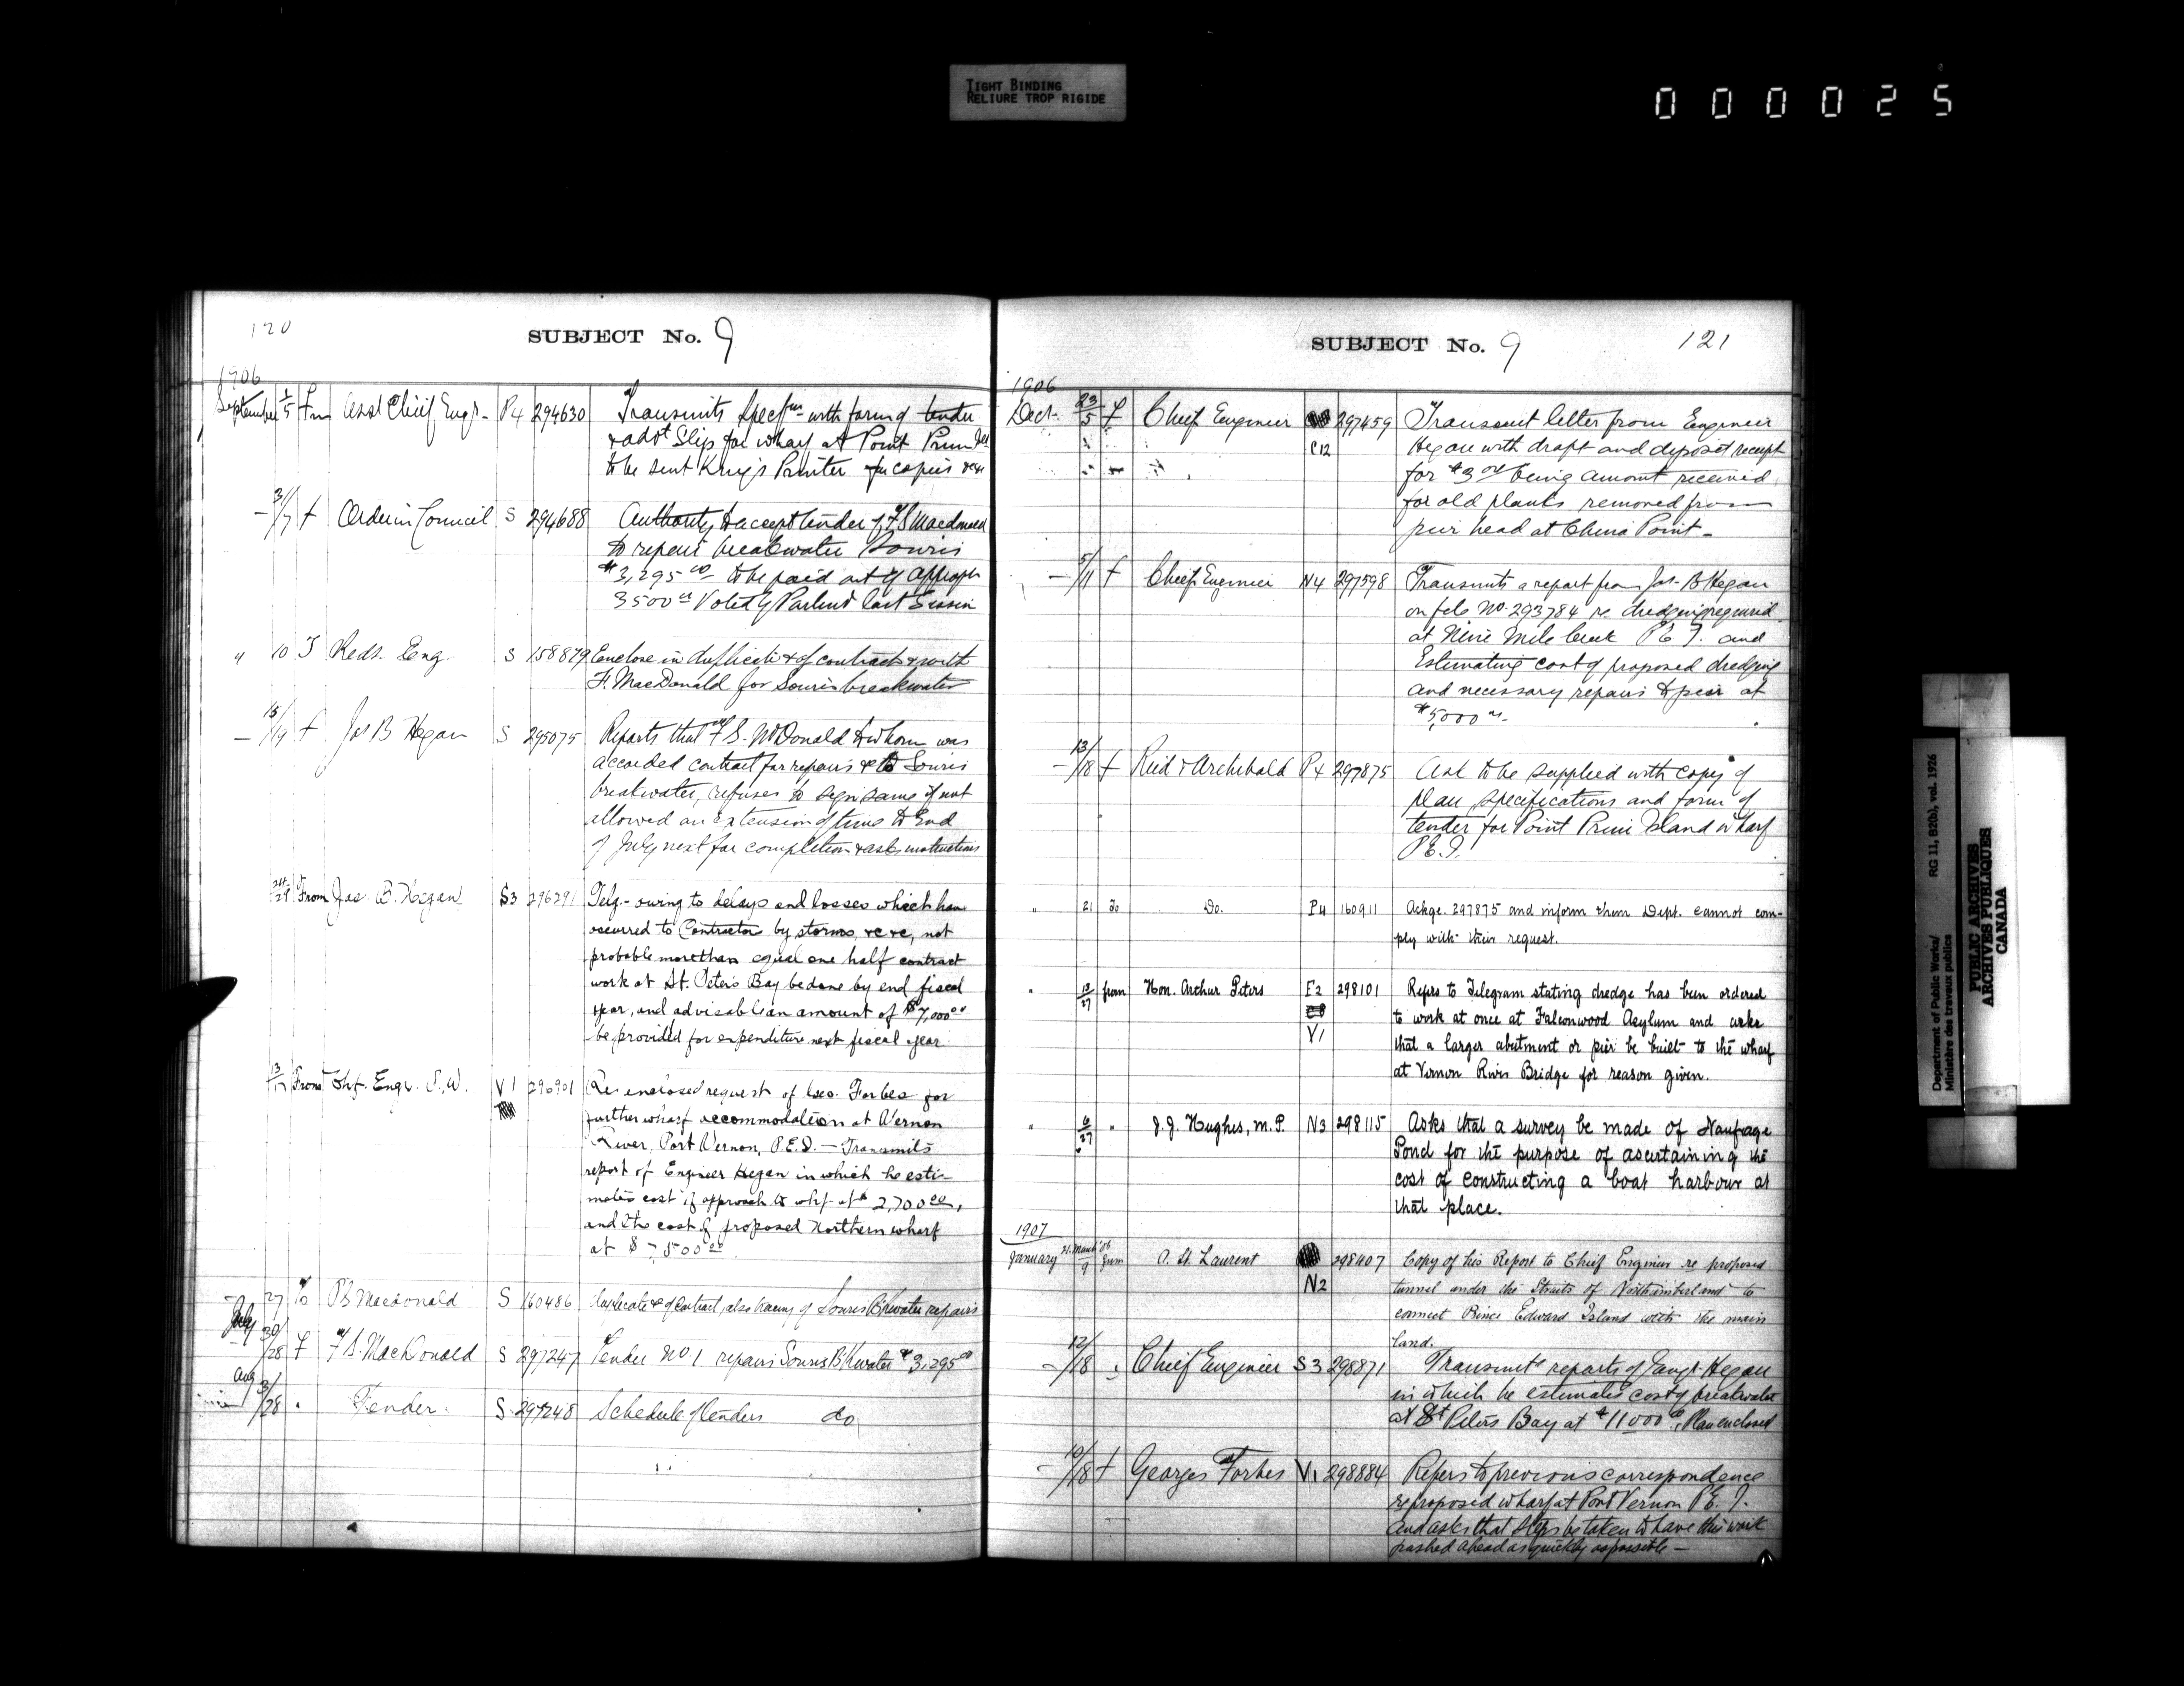 TIGHT BINDING
RELIURE TROP RIGIDE
000025
120
SUBJECT No. 9
1906
September 1/5 Fm Asst Chief Engr. P4 294630 Transmits Specfns with form of tender
& advt Slip for wharf at Point Prim Isl
to be sent King's Printer for copies
31/7 f Order in Council S 294688 Authority to accept tender of F S Macdonald
to repair breakwater Souris
$3,295 00 to be paid out of approp
3500 00 Voted by Parlmt last Session
" 10 T Redt. Eng. S 158879 Enclose in duplicate of contract with
F. MacDonald for Souris breakwater
— 15/19 f Jas B Hegan S 295075 Reports that F S. McDonald to whom was
accorded contract for repairs to Souris
breakwater, refuses to sign same if not
allowed an extension of time to End
of July next for completion & asks instructions
From Jas. B. Hegan S3 296291 Telg.- owing to delays and losses which have
occurred to Contractor by storms, &c &c, not
probable more than equal one half contract
work at St. Peter's Bay be done by end fiscal
year, and advisable an amount of $7,000 00
be provided for expenditure next fiscal year
From Chf. Engr. P.W. V1 296901 Re. enclosed request of Geo. Forbes for
further wharf accommodation at Vernon
River, Port Vernon, P.E.I. — Transmits
report of Engineer Hegan in which he esti-
mates cost of approach to whf. at $2,700 00,
and the cost of proposed Northern wharf
at $ 500 00
27 To S 160486 Duplicate of Contract, also tracing of Souris B'kwater repairs
July 30/28 f F S. MacDonald S 297247 Tender No. 1 repairs Souris B'Kwater $3,295 00
Aug 3/28 " Tender S 297248 Schedule of tenders do
SUBJECT No. 9 121
1906
Decr. 23/5 f Chief Engineer C12 297459 Transmit letter from Engineer
Hegan with draft and deposit receipt
for $3 00 being amount received
for old planks removed from
pier head at China Point -
— 5/11 f Chief Engineer N4 297598 Transmits a report from Jas. B Hegan
on file No. 293784 re. dredging required
at Nine Mile Creek P E I. and
Estimating cost of proposed dredging
and necessary repairs to pier at
$5,000 00 -
— 13/18 f Reid & Archibald P4 297875 Ask to be supplied with copy of
plan specifications and form of
tender for Point Prim Island wharf
P E. I.
" 21 To Do. P4 160911 Ackge. 297875 and inform them Dept. cannot com-
ply with their request.
" 13/27 from Hon. Arthur Peters F2 298101 Refers to Telegram stating dredge has been ordered
to work at once at Falconwood Asylum and asks
V1 that a larger abutment or pier be built to the wharf
at Vernon River Bridge for reason given.
" 6/27 " J.J. Hughes, M.P. N3 298115 Asks that a survey be made of Naufrage
Pond for the purpose of ascertaining the
cost of constructing a boat harbour at
that place.
1907
January 21. March '06 9 from A. St. Laurent 298407 Copy of his Report to Chief Engineer re proposed
N2 tunnel under the Straits of Northumberland to
connect Prince Edward Island with the main
land.
— 12/18 " Chief Engineer S3 298871 Transmits reports of Engr. Hegan
in which he estimates cost of breakwater
at St Peters Bay at $11000 00, Plan enclosed
— 10/18 f Georges Forbes V1 298884 Refers to previous correspondence
re proposed wharf at Port Vernon P E. I.
and asks that steps be taken to have this work
pushed ahead as quickly as possible —
Department of Public Works/ RG 11, B2(b), vol. 1926
Ministère des travaux publics
PUBLIC ARCHIVES
ARCHIVES PUBLIQUES
CANADA